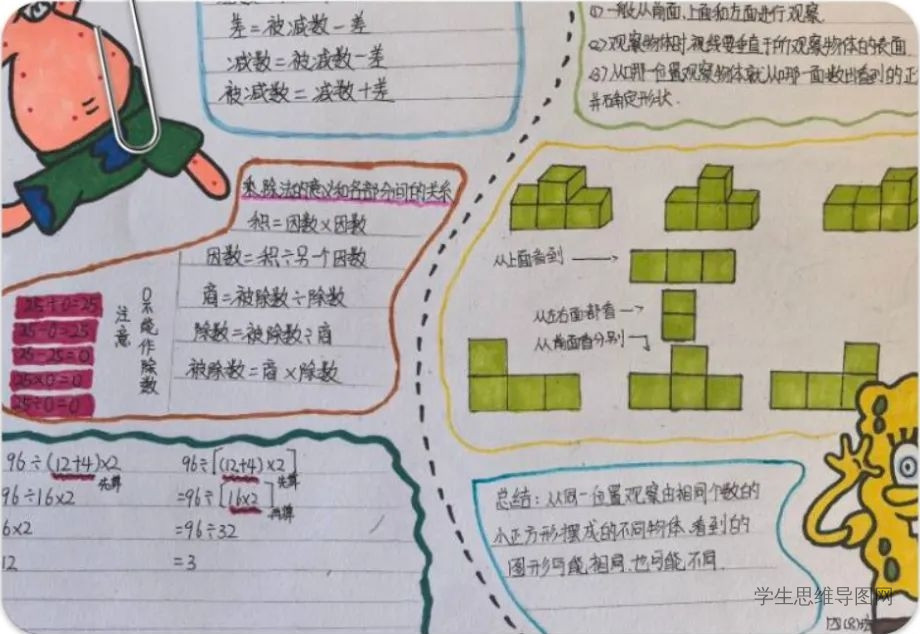 差=被减数-差
减数=被减数-差
被减数=减数+差
乘、除法的意义和各部分间的关系
积=因数×因数
因数=积÷另一个因数
商=被除数÷除数
除数=被除数÷商
被除数=商×除数
注意
0不能作除数
25+0=25
25-0=25
25-25=0
25×0=0
25÷0=0
96÷(12+4)×2
先算
96÷16×2
6×2
12
96÷[(12+4)×2]
先算
=96÷[16×2]
再算
=96÷32
=3
(1)一般从前面、上面和左面进行观察.
(2)观察物体时,视线要垂直于所观察物体的表面
(3)从哪一位置观察物体,就从哪一面数出看到的正
并确定形状.
从上面看到
从左右面都看
从前面看分别
总结:从同一位置观察由相同个数的
小正方形摆成的不同物体,看到的
图形可能相同,也可能不同.
学生思维导图网
四(8)班